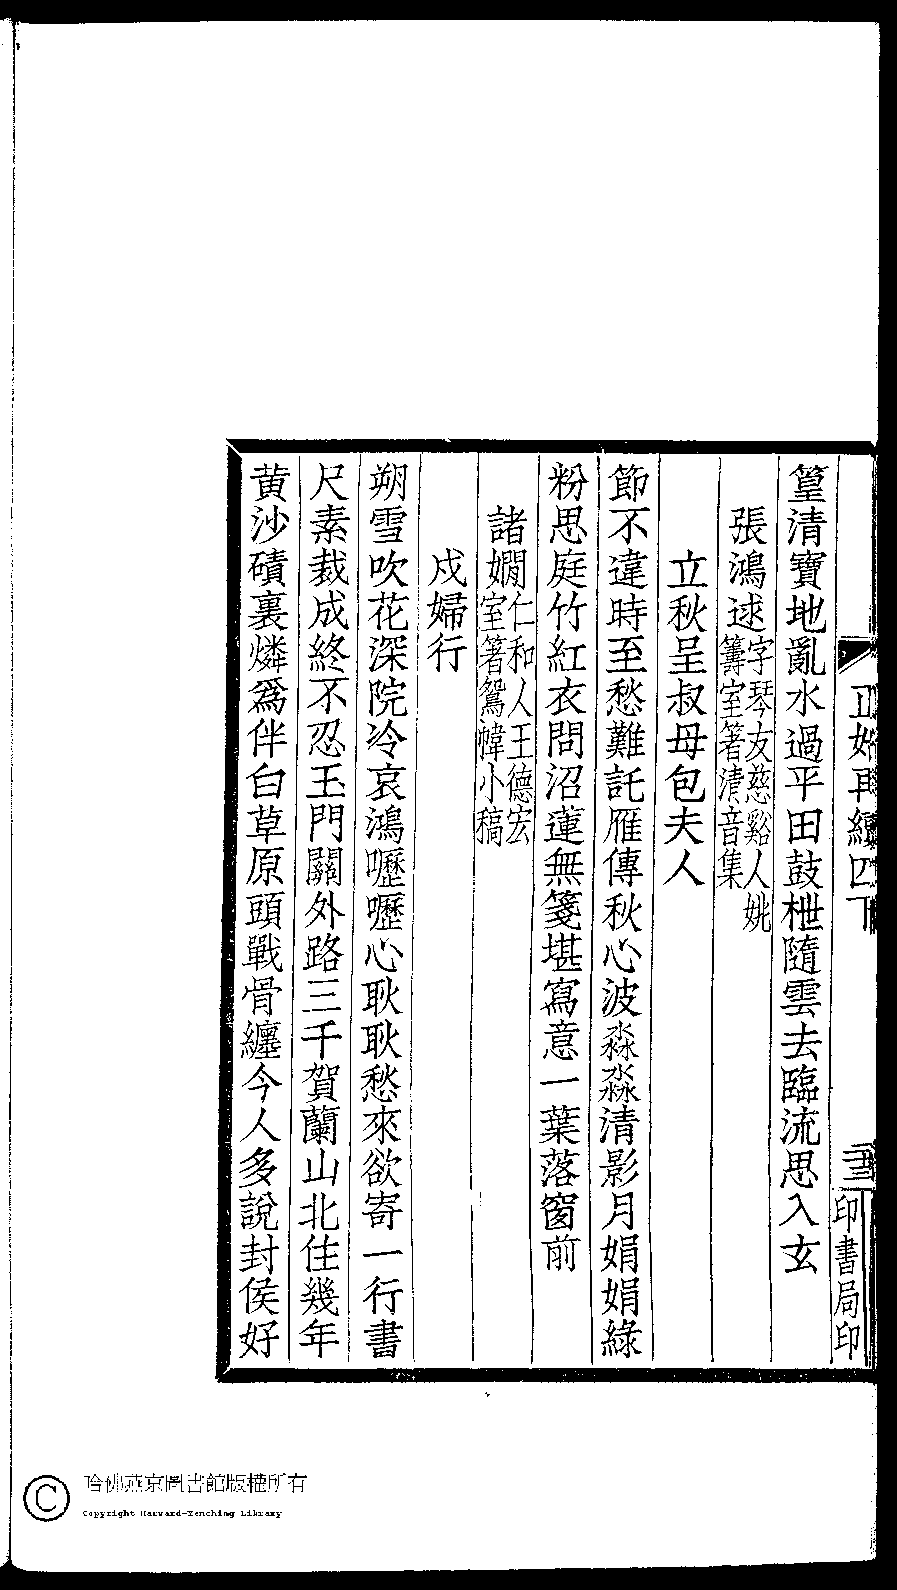 正始再續四下
三
印書局印
篁清寶地亂水過平田鼓枻隨雲去臨流思入玄
張鴻逑字琴友慈谿人姚
籌室箸清音集
立秋呈叔母包夫人
節不違時至愁難託雁傳秋心波淼淼清影月娟娟綠
粉思庭竹紅衣問沼蓮無箋堪寫意一葉落窗前
諸嫺仁和人王德宏
室箸鴛幃小稿
戍婦行
朔雪吹花深院冷哀鴻嚦嚦心耿耿愁來欲寄一行書
尺素裁成終不忍玉門關外路三千賀蘭山北住幾年
黄沙磧裏燐爲伴白草原頭戰骨纏今人多說封侯好
哈佛燕京圖書館版權所有
Copyright Harvard-Yenching Library